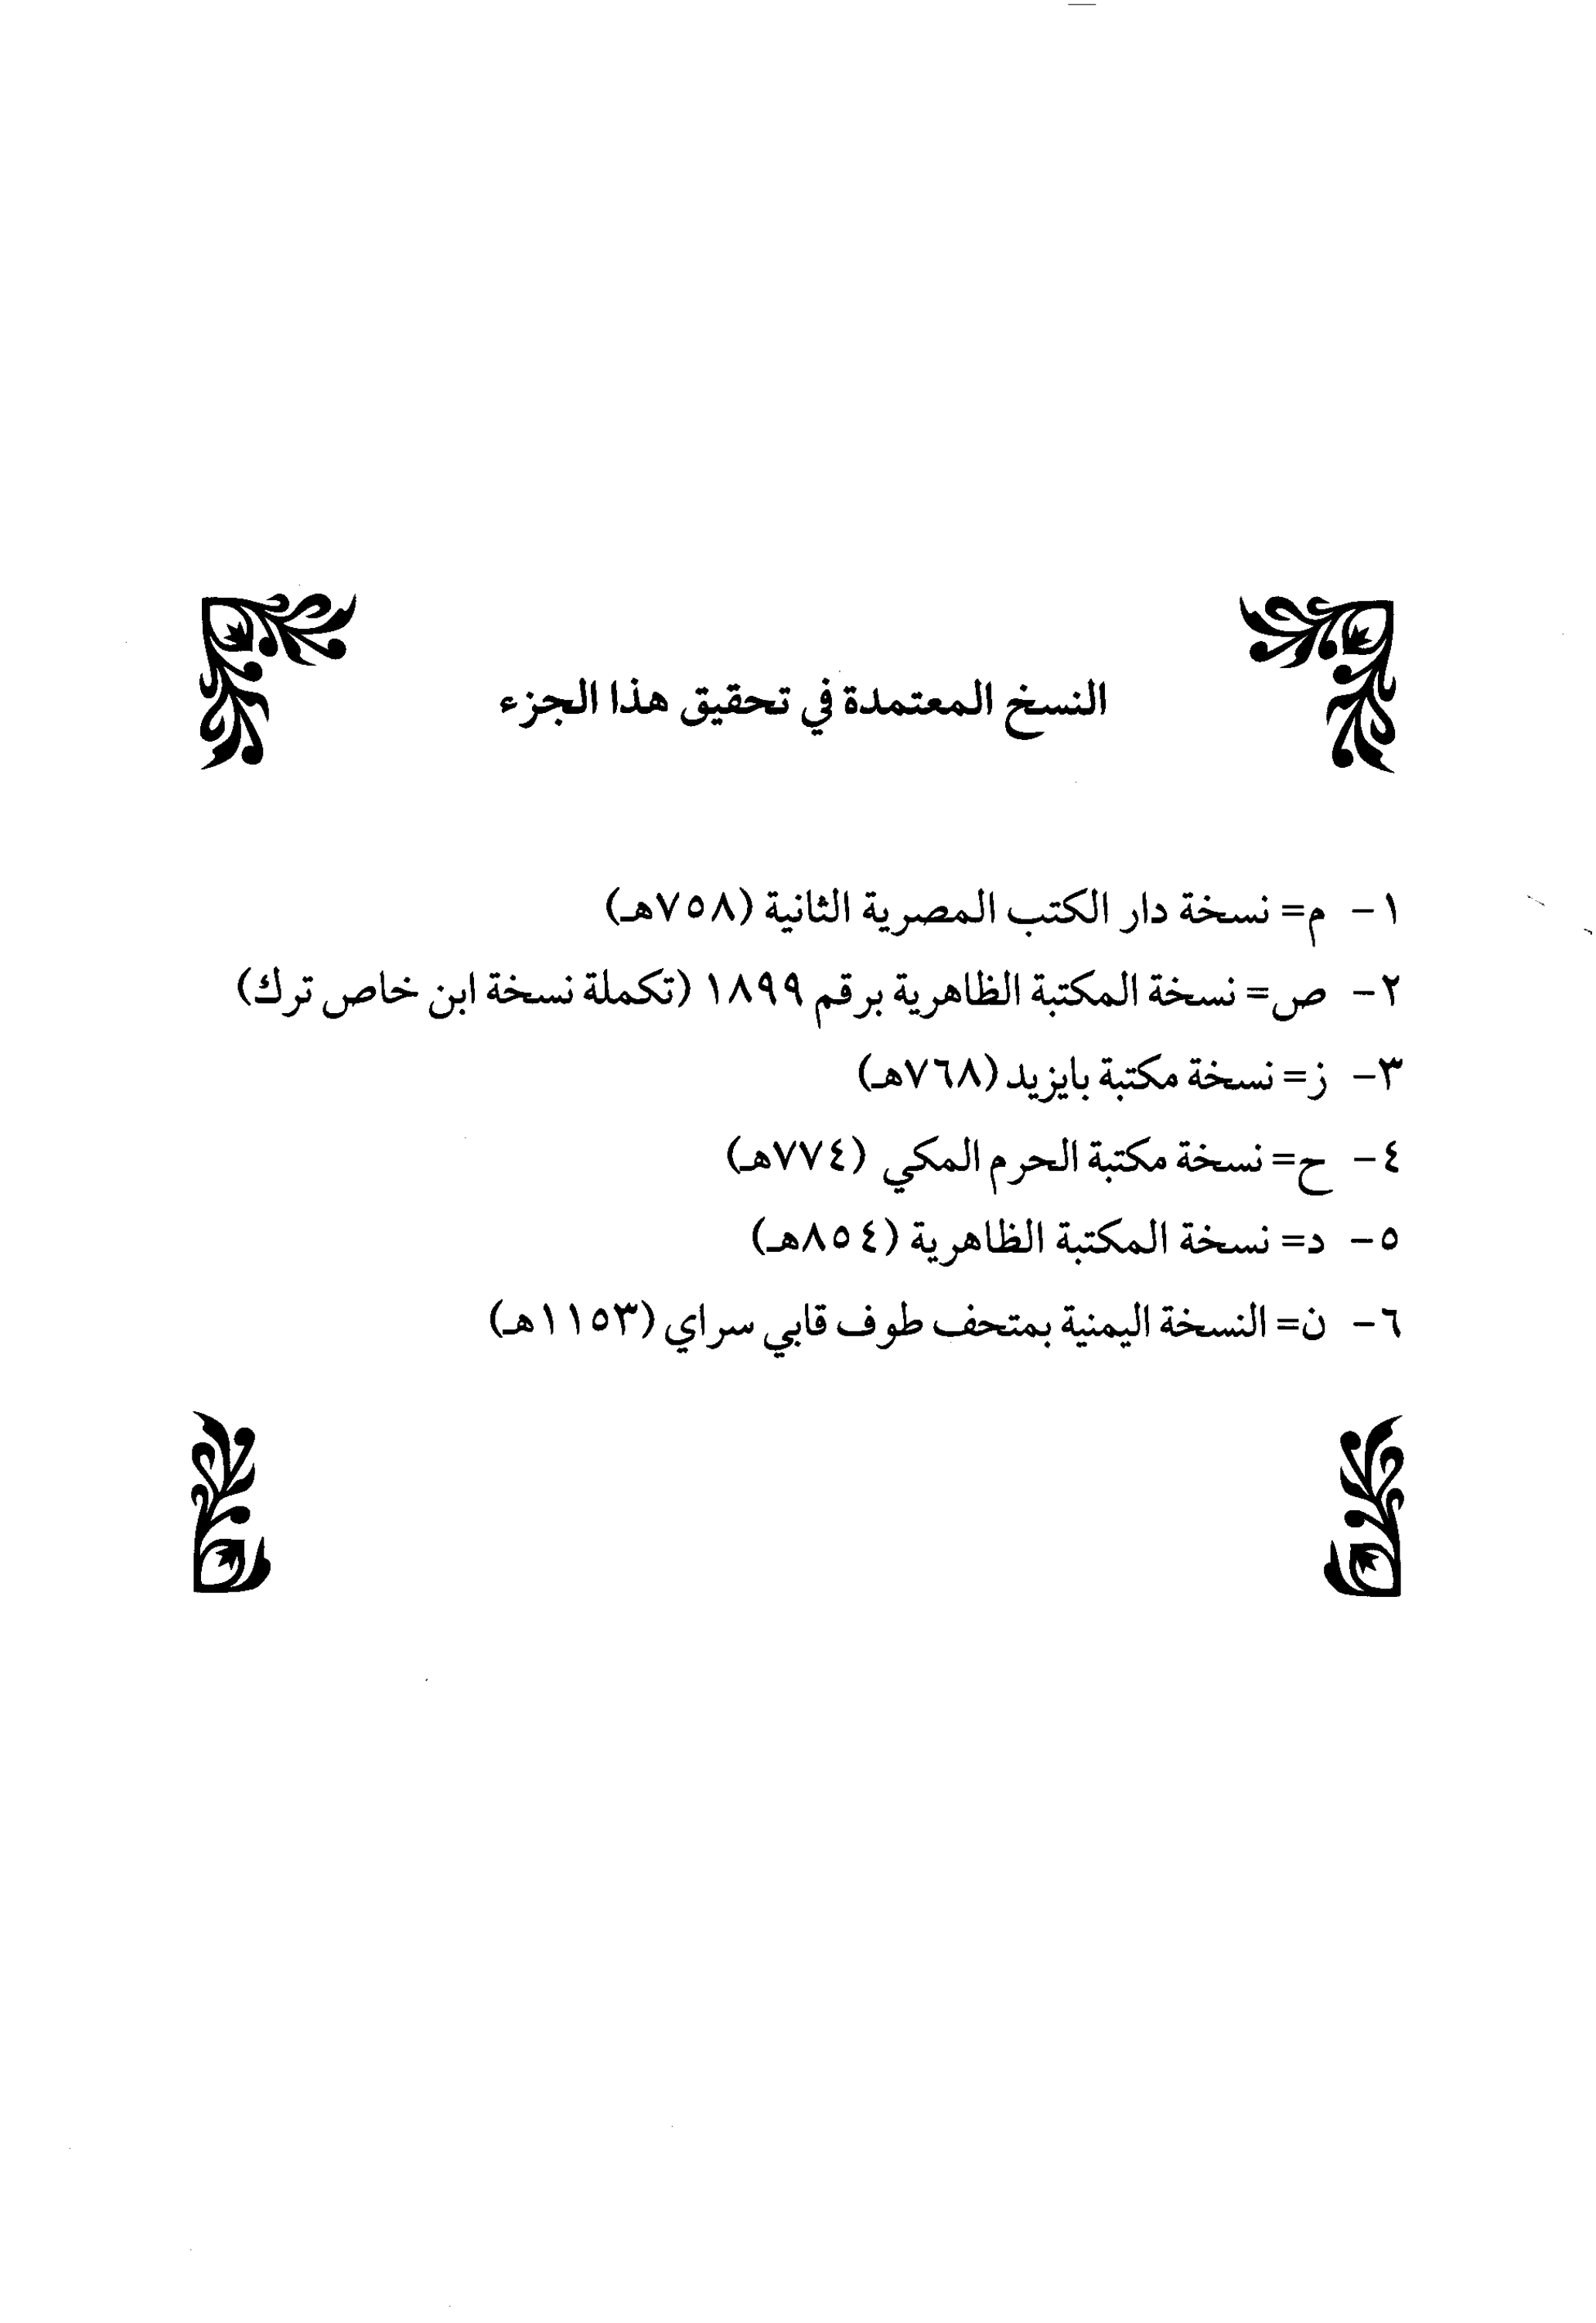 النسخ المعتمدة في تحقيق هذا الجزء
١- م= نسخة دار الكتب المصرية الثانية (٧٥٨هـ)
٢- ص= نسخة المكتبة الظاهرية برقم ١٨٩٩ (تكملة نسخة ابن خاص ترك)
٣- ز= نسخة مكتبة بايزيد (٧٦٨هـ)
٤- ح= نسخة مكتبة الحرم المكي (٧٧٤هـ)
٥- د= نسخة المكتبة الظاهرية (٨٥٤هـ)
٦- ن= النسخة اليمنية بمتحف طوف قابي سراي (١١٥٣هـ)